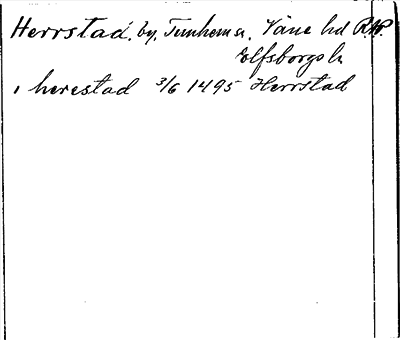 Herrstad, by, Tunhem sn. Väne hd R.AP.
Elfsborgs ln
i herestad 3/6 1495 Herrstad